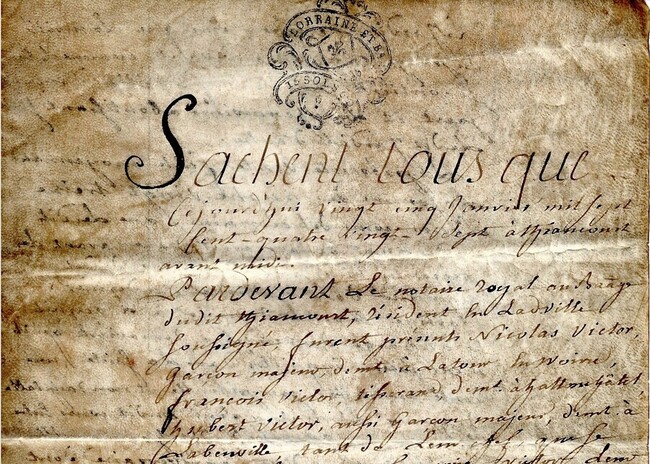 LORRAINE ET B
Sachent tous que
Cejourd'huy vingt cinq Janvier mil sept
Cent-quatre vingt-sept à thiaucourt
avant midi
Pardevant Le notaire royal au
dudit thiaucourt, résident en Ladville
soussigné, furent présents Nicolas Victor,
Garçon majeur demt à Latour en Woivre,
françois Victor tisserand demt à hattonchatel,
hubert Victor, aussi Garçon majeur, demt à
tant de que se